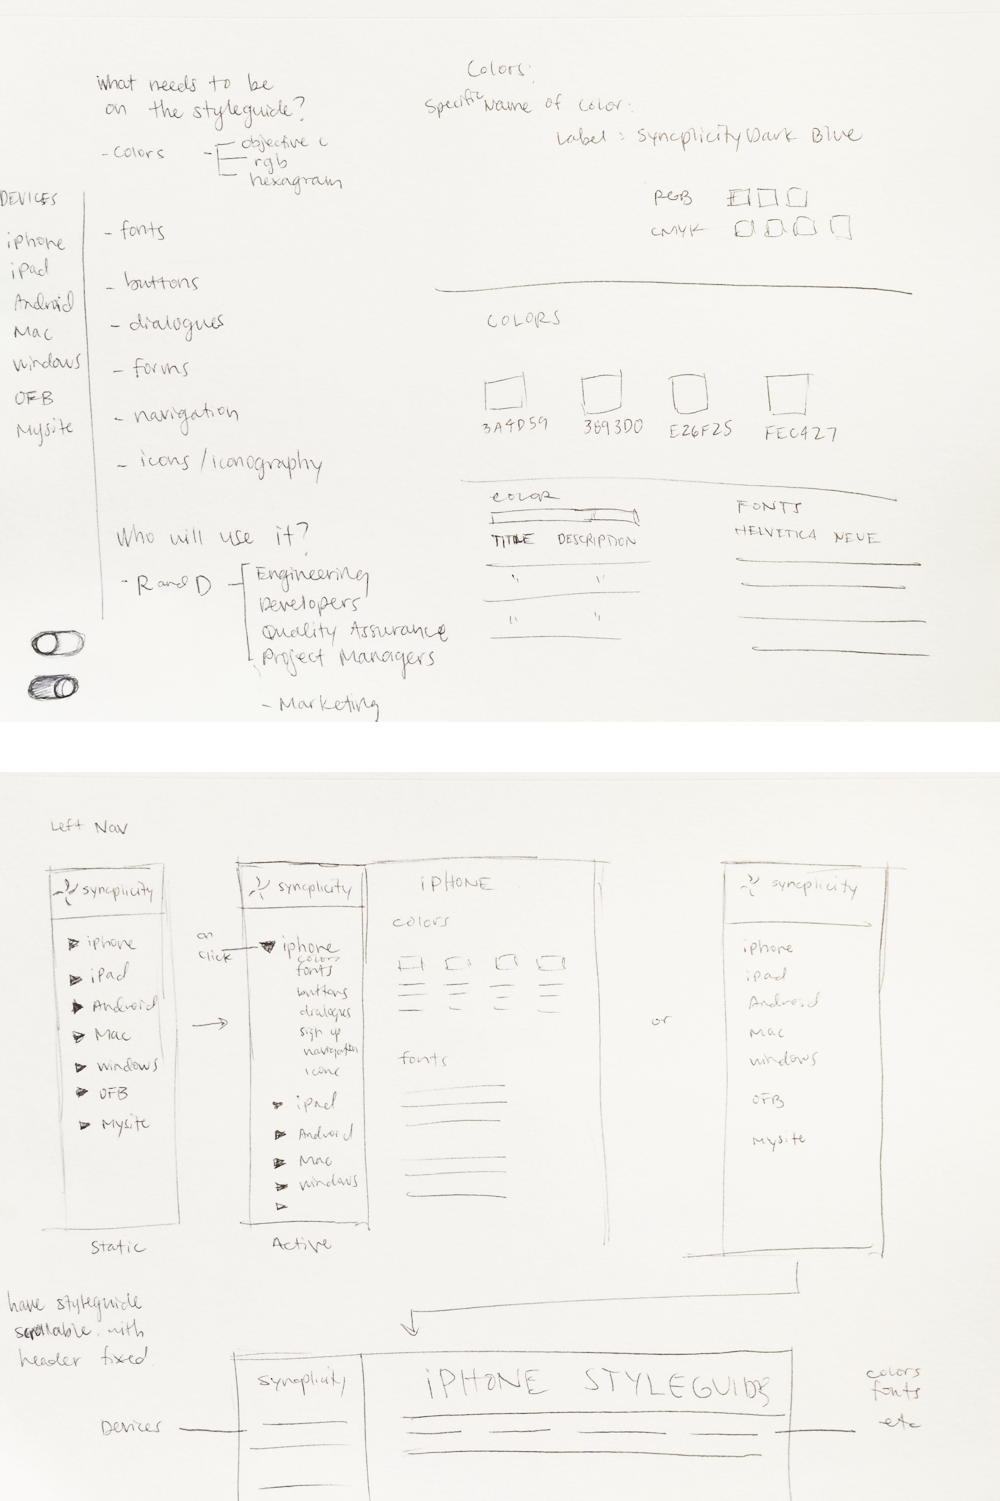 what needs to be
on the styleguide?
- colors
objective c
rgb
hexagram
DEVICES
iphone
iPad
Android
Mac
windows
OFB
Mysite
- fonts
- buttons
- dialogues
- forms
- navigation
- icons / iconography
Who will use it?
- R and D
Engineering
Developers
Quality Assurance
Project Managers
- Marketing
Colors:
Specific Name of Color:
Label : Syncplicity Dark Blue
RGB
CMYK
COLORS
3A4D59
3893D0
E26F25
FEC427
COLOR
TITLE DESCRIPTION
" "
" "
FONTS
HELVETICA NEUE
Left Nav
syncplicity
iphone
iPad
Android
Mac
windows
OFB
Mysite
Static
on
click
syncplicity
iphone
colors
fonts
buttons
dialogues
sign up
navigation
icons
ipad
Android
Mac
windows
Active
iPHONE
colors
fonts
or
syncplicity
iphone
ipad
Android
Mac
windows
OFB
Mysite
have styleguide
scrollable with
header fixed
Devices
syncplicity
iPHONE STYLEGUIDE
colors
fonts
etc